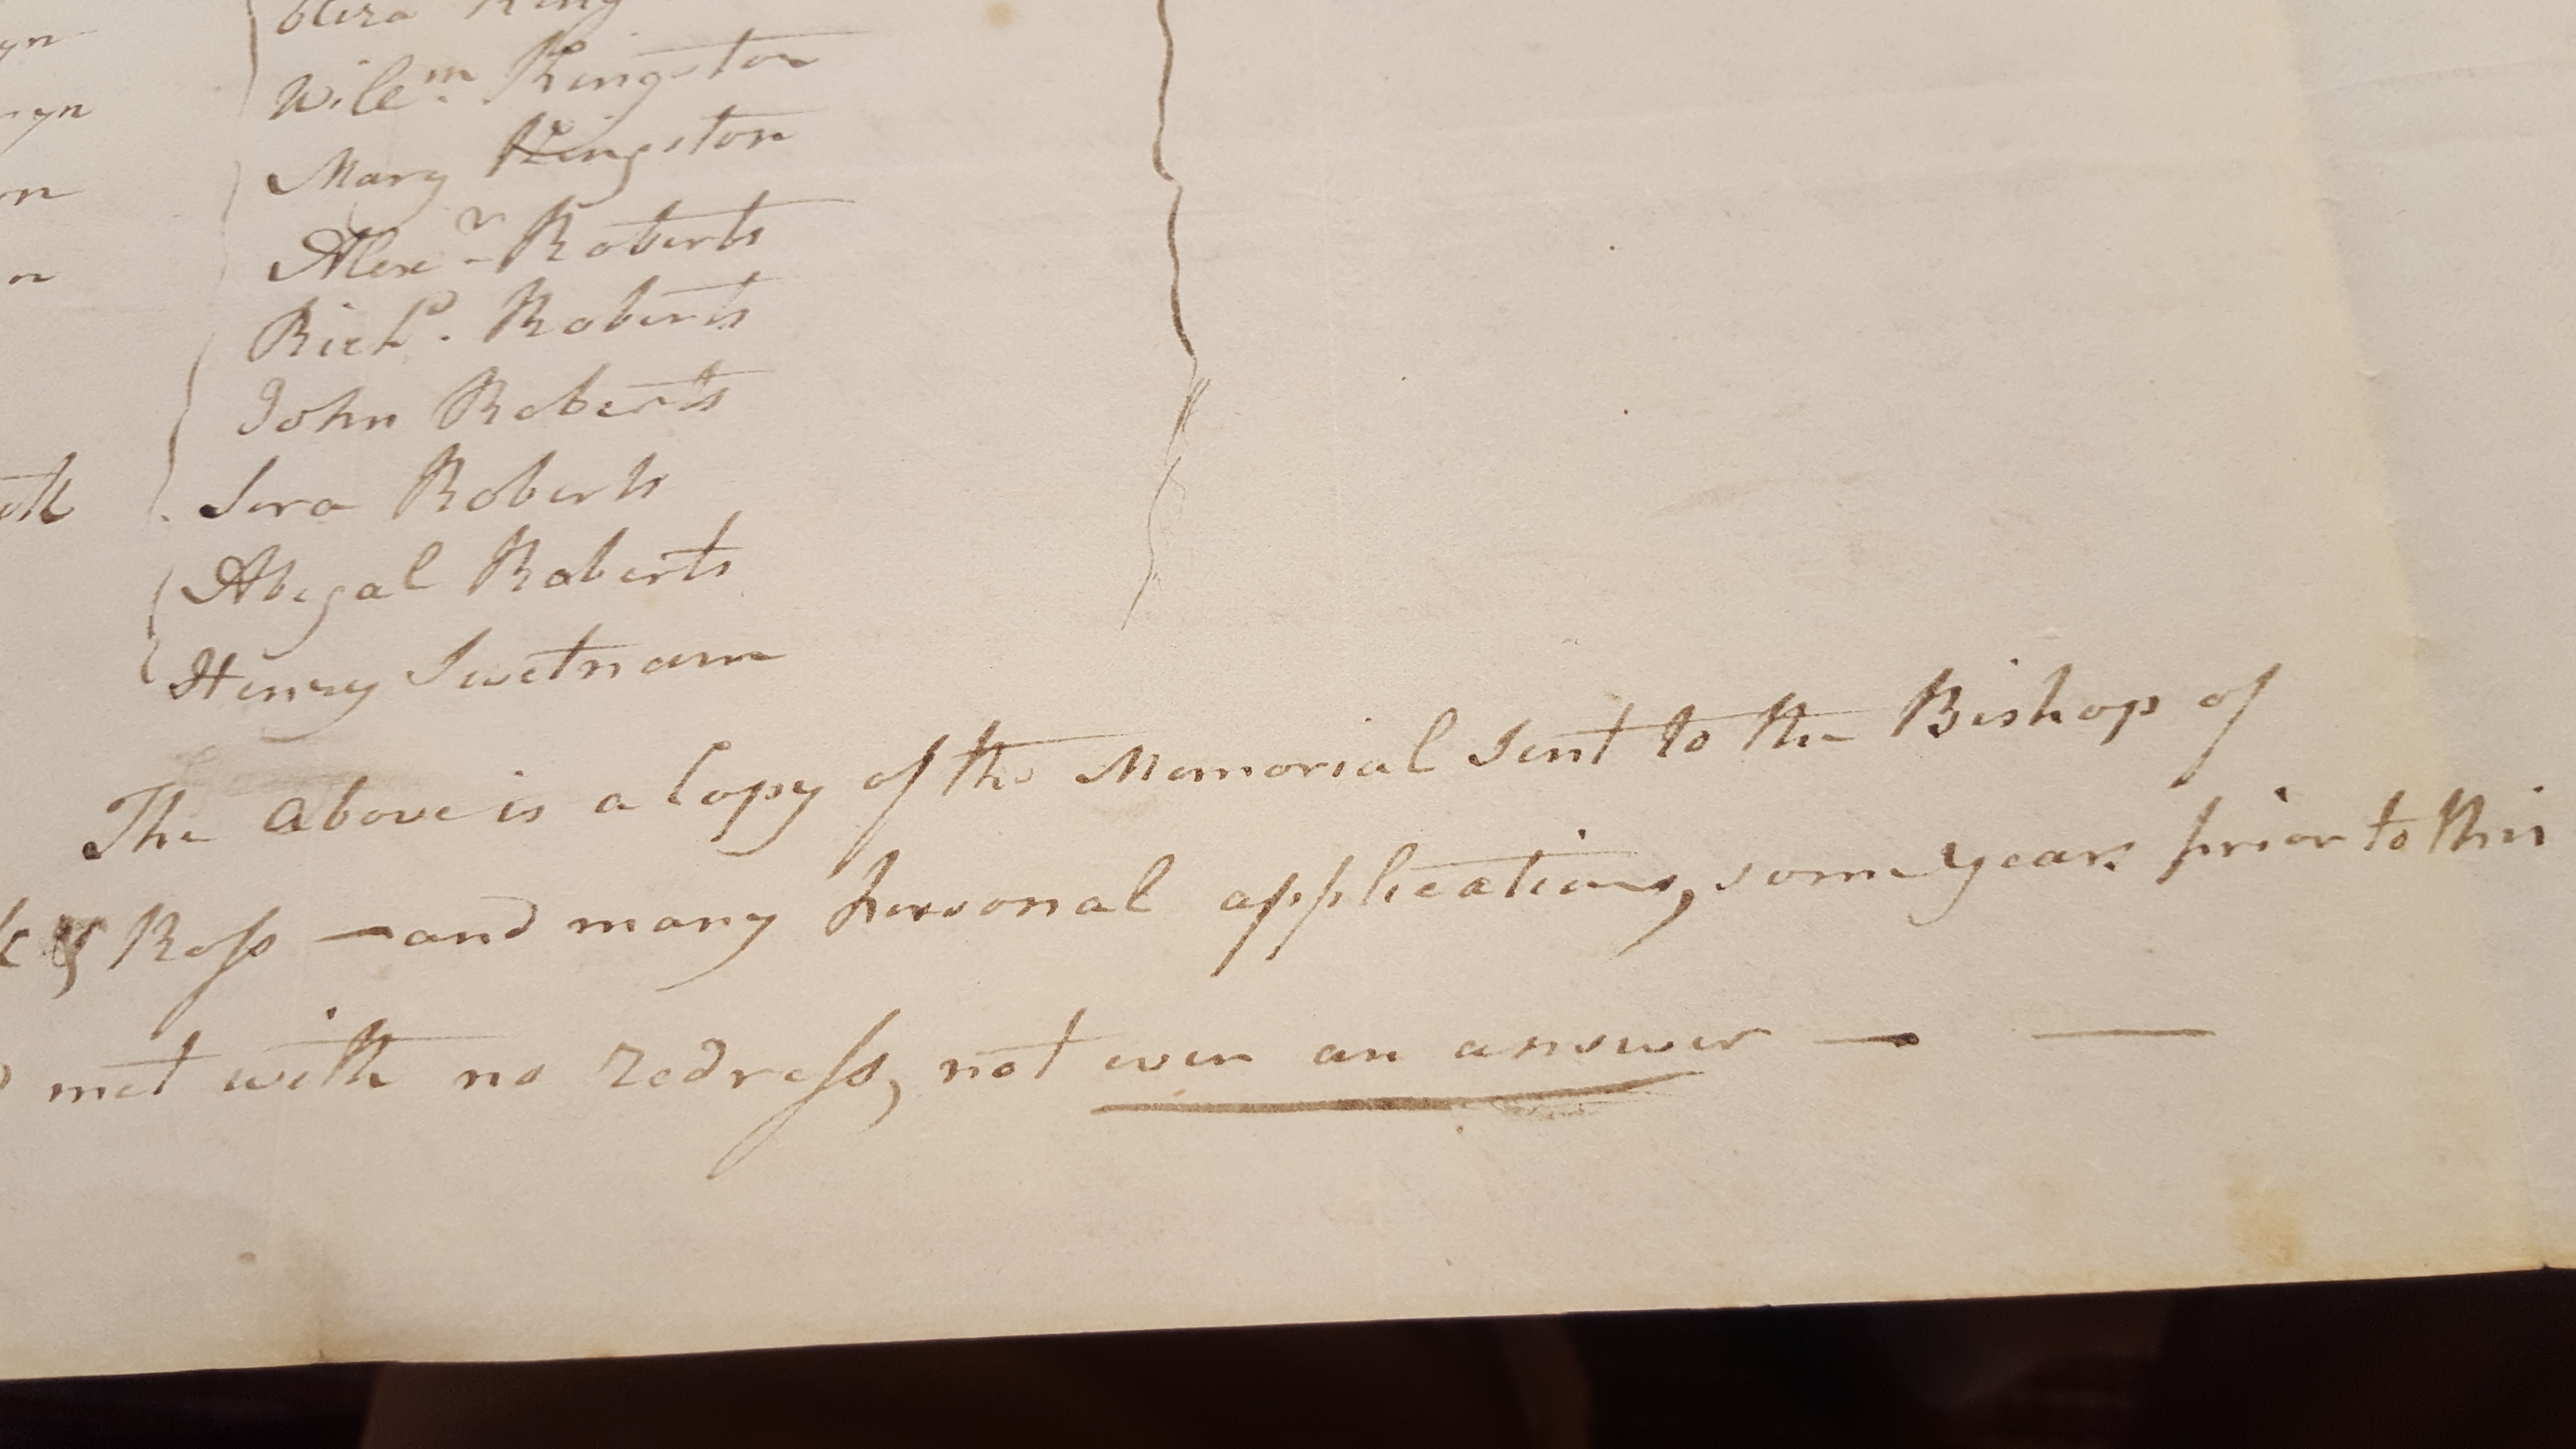 King
Will^m. Kingston
Mary Kingston
Alex^r. Roberts
Rich^d. Roberts
John Roberts
Sera Roberts
Abegal Roberts
Henry Swetnam
The above is a Copy of the Memorial Sent to the Bishop of
& Ross — and many Personal applications, some years prior to this
met with no Redress, not even an answer — —